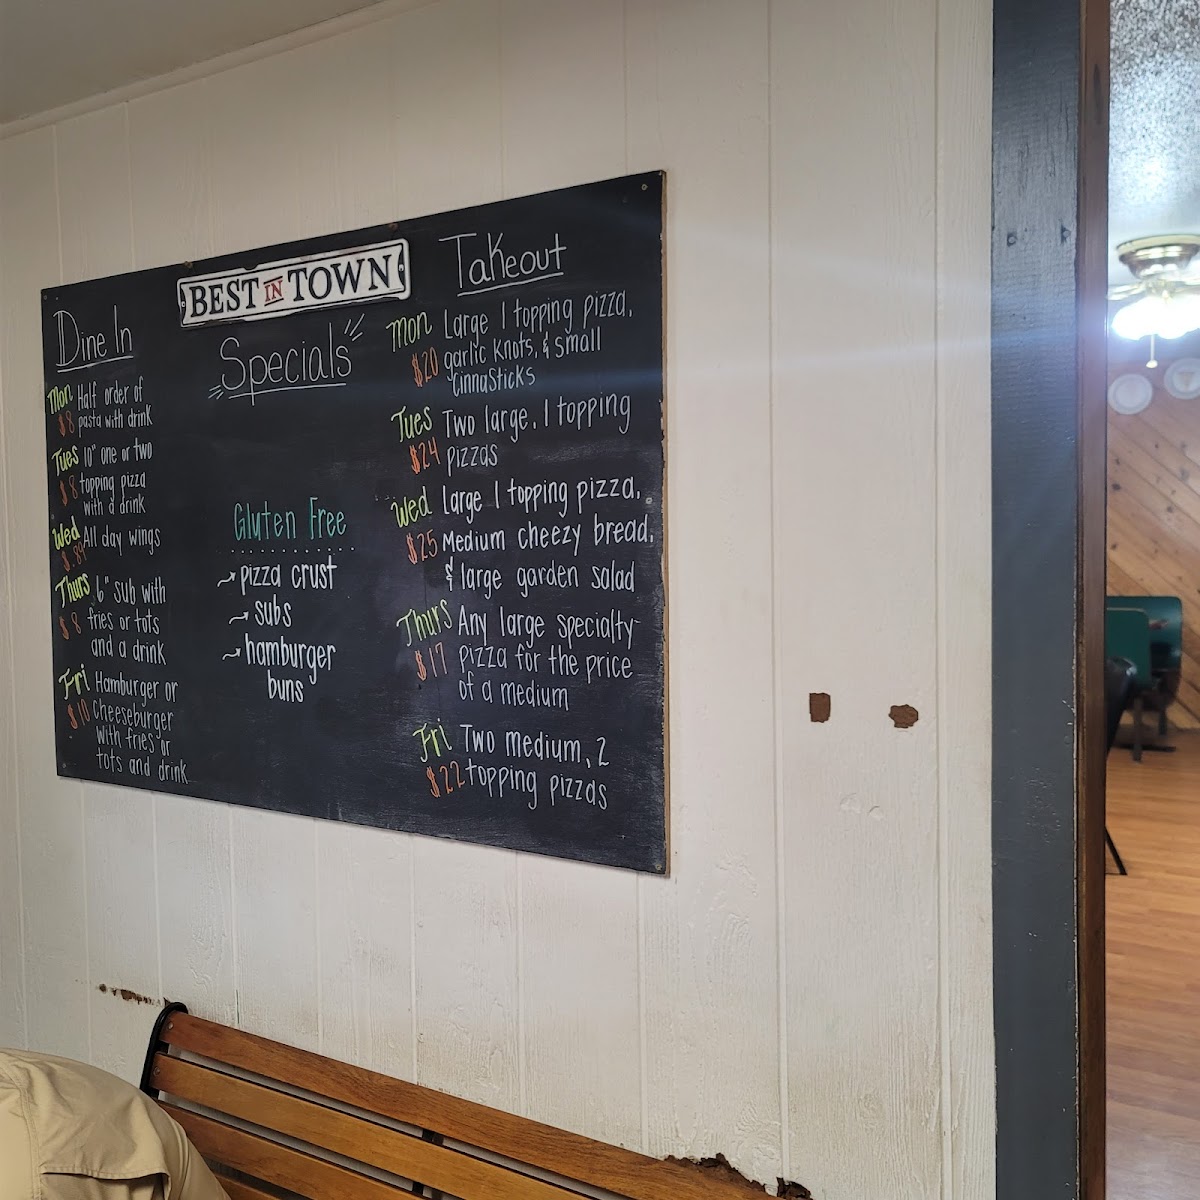 BEST IN TOWN
Specials
Dine In
Mon Half order of
$8 pasta with drink
Tues 10" one or two
$8 topping pizza
with a drink
Wed All day wings
$.89
Thurs 6" sub with
$8 fries or tots
and a drink
Fri Hamburger or
$10 cheeseburger
with fries or
tots and drink
Gluten Free
pizza crust
subs
hamburger
buns
Takeout
Mon Large 1 topping pizza,
$20 garlic knots, & small
cinnasticks
Tues Two large, 1 topping
$24 pizzas
Wed Large 1 topping pizza,
$25 Medium cheezy bread,
& large garden salad
Thurs Any large specialty
$17 pizza for the price
of a medium
Fri Two medium, 2
$22 topping pizzas